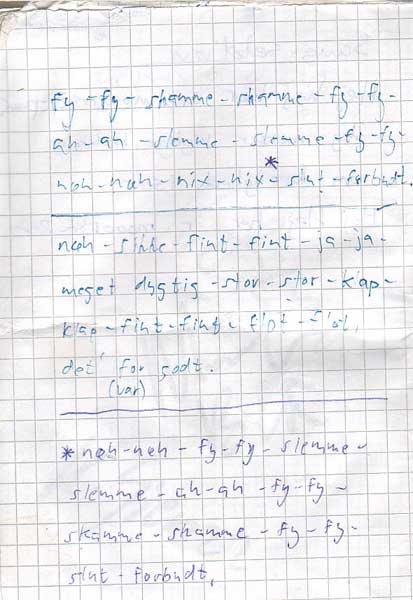 fy - fy - skamme - skamme - fy - fy -
ah - ah - slemme - slemme - fy - fy -
nøh - nøh - nix - nix * - slut - forbudt.
nøh - fint - fint - ja - ja -
meget dygtig - stor - stor - klap -
klap - fint - fint - flot - flot.
det' for godt.
(var)
* nøh - nøh - fy - fy - slemme -
slemme - ah - ah - fy - fy -
skamme - skamme - fy - fy -
slut - forbudt.